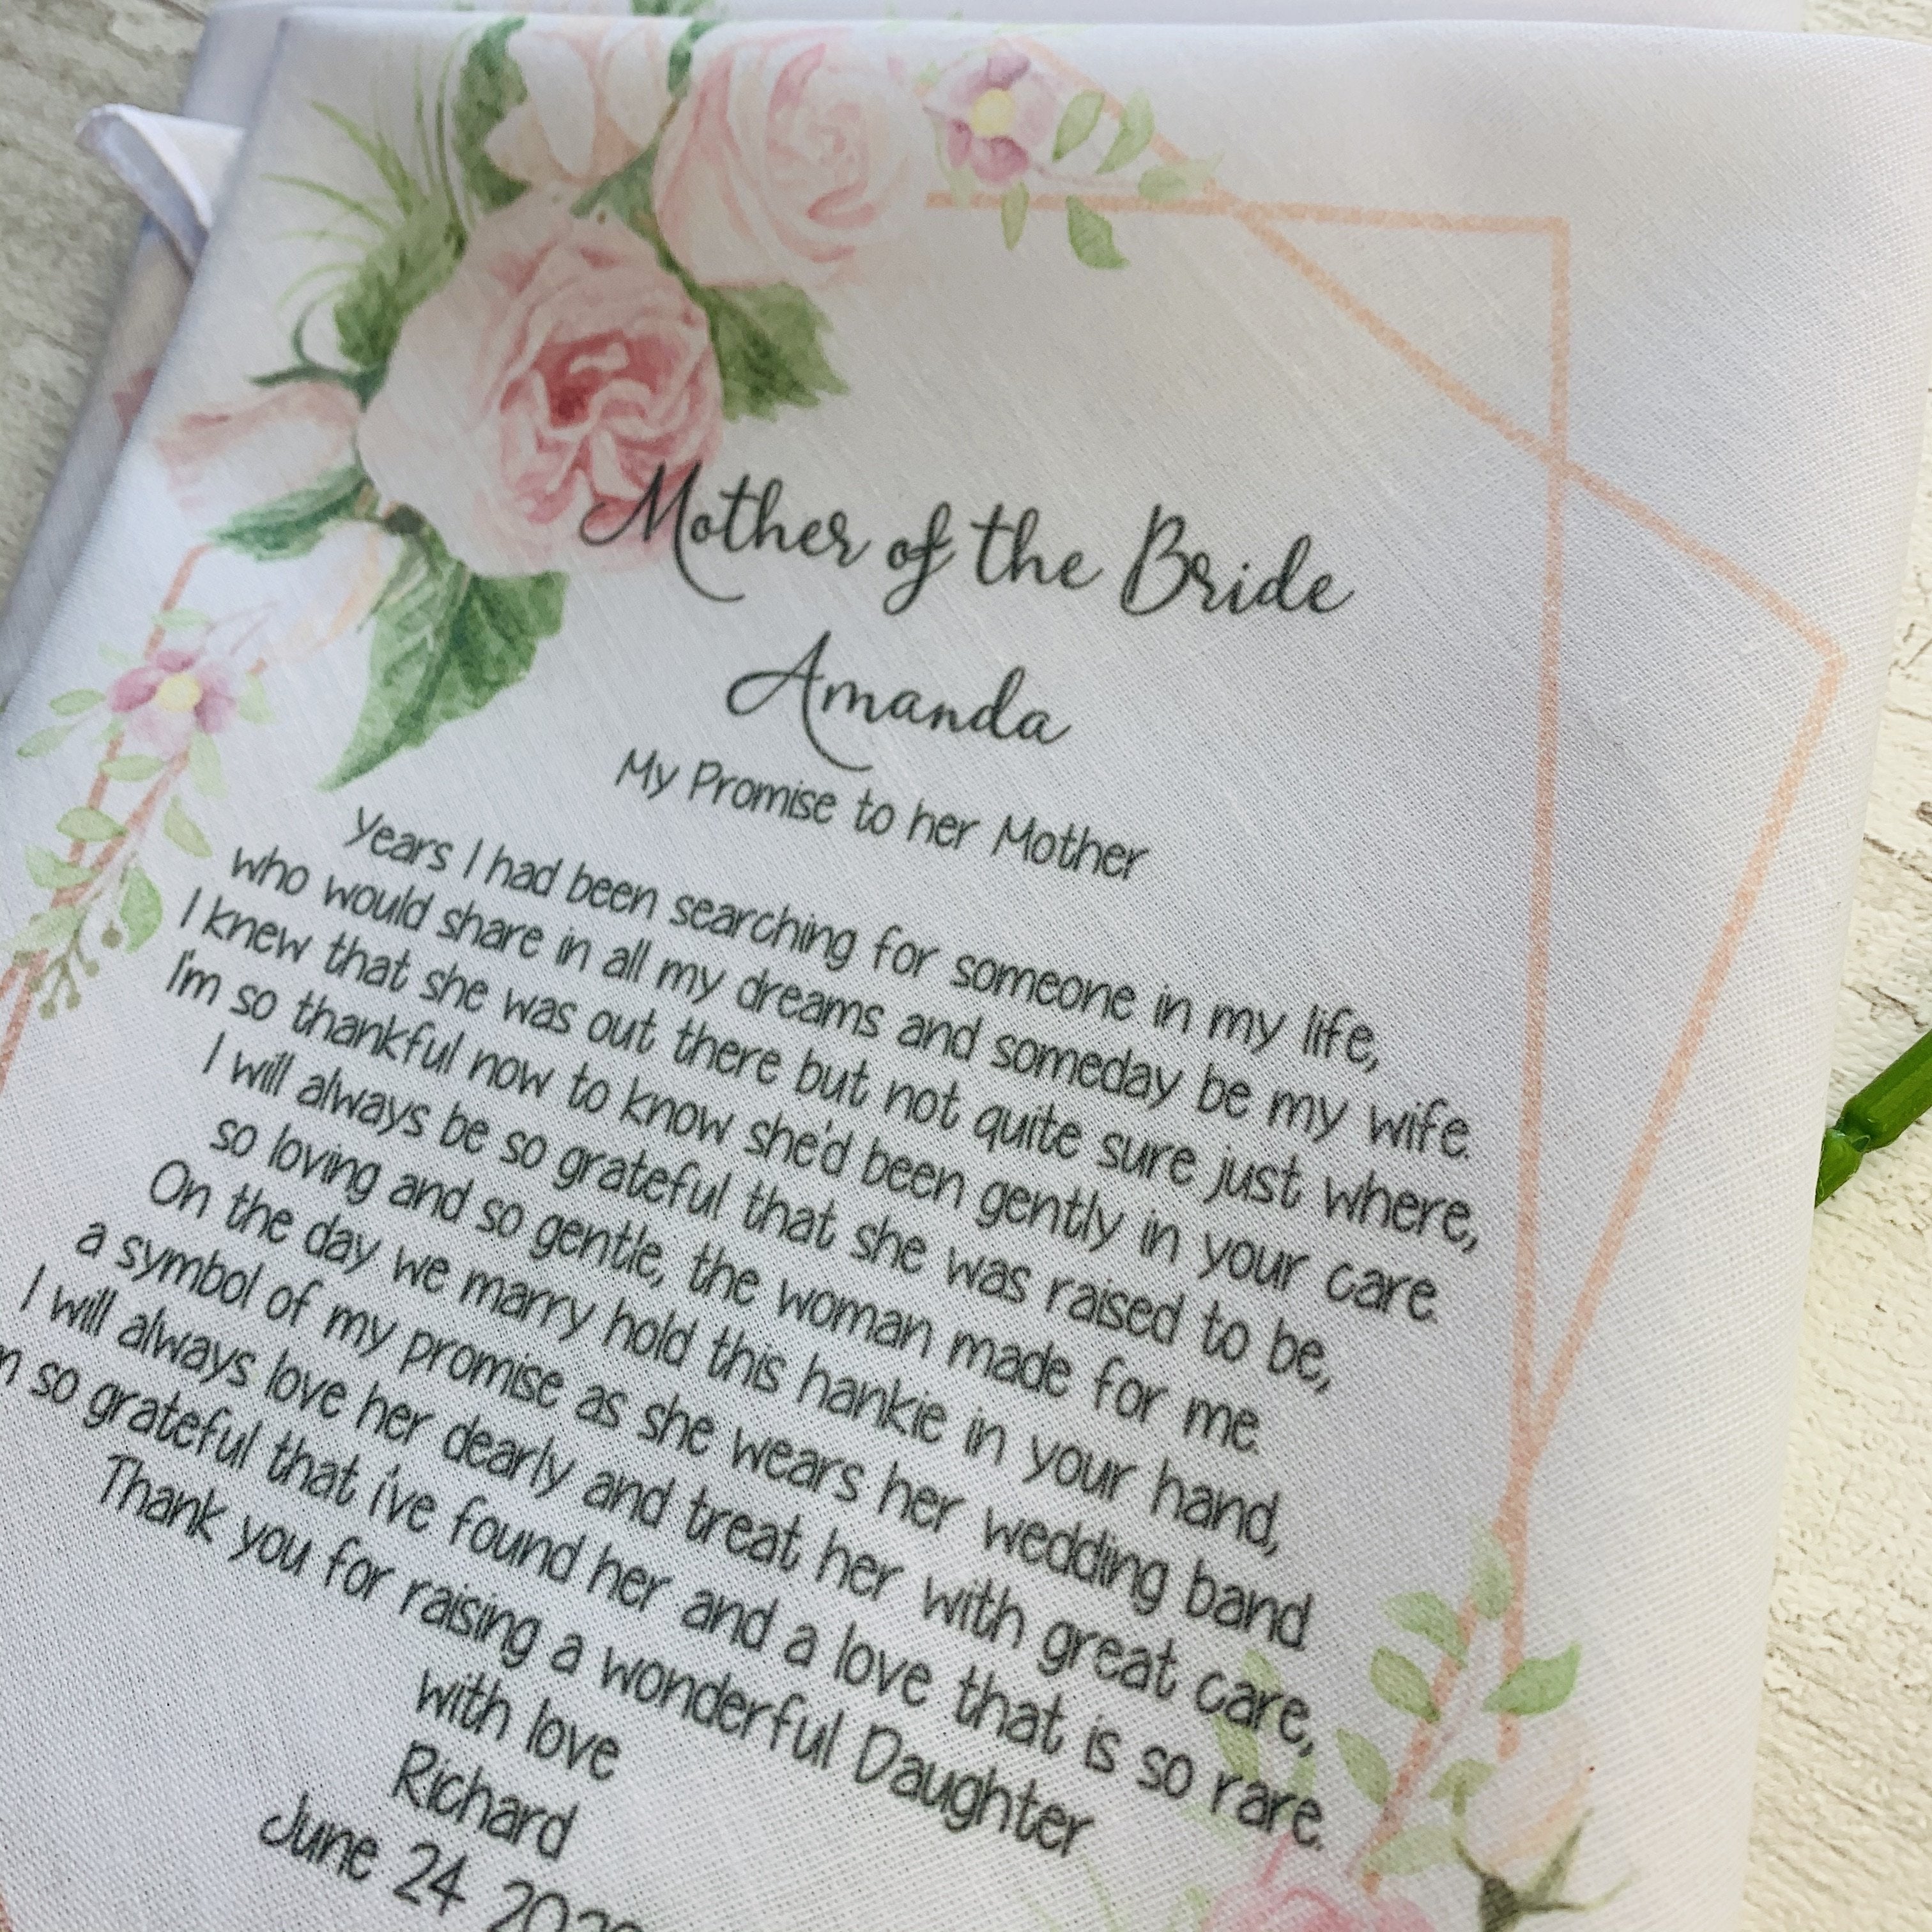 Mother of the Bride
Amanda
My Promise to her Mother
Years I had been searching for someone in my life,
who would share in all my dreams and someday be my wife.
I knew that she was out there but not quite sure just where,
I'm so thankful now to know she'd been gently in your care.
I will always be so grateful that she was raised to be,
so loving and so gentle, the woman made for me.
On the day we marry hold this hankie in your hand,
a symbol of my promise as she wears her wedding band.
I will always love her dearly and treat her with great care,
so grateful that i've found her and a love that is so rare.
Thank you for raising a wonderful Daughter
with love
Richard
June 24